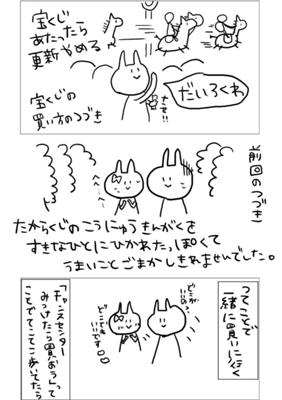 宝くじ
あたったら
更新やめる
だいろくわ
宝くじの
買い方のつづき
さて!!
前回のつづき
へへ…へ
たからくじのこうにゅうきんがくを
すきなひとにひかれた。っぽくて
うまいことごまかしきれませんでした。
ってことで
一緒に買いに行く
どこでも
いいです
「チャンスセンター
みつけたら買おう」って
ことでてこてこ歩いてたら